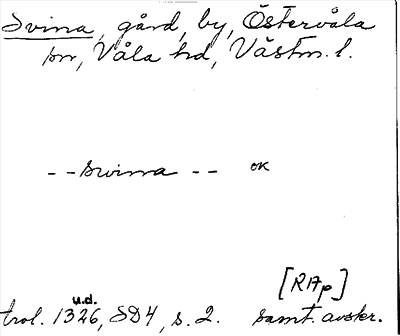 Svina, gård, by, Östervåla
sn, Våla hd, Västm. l.
-- swinna -- OK
[RAp]
u.d.
trol. 1326, SD4, s. 2. samt. avskr.